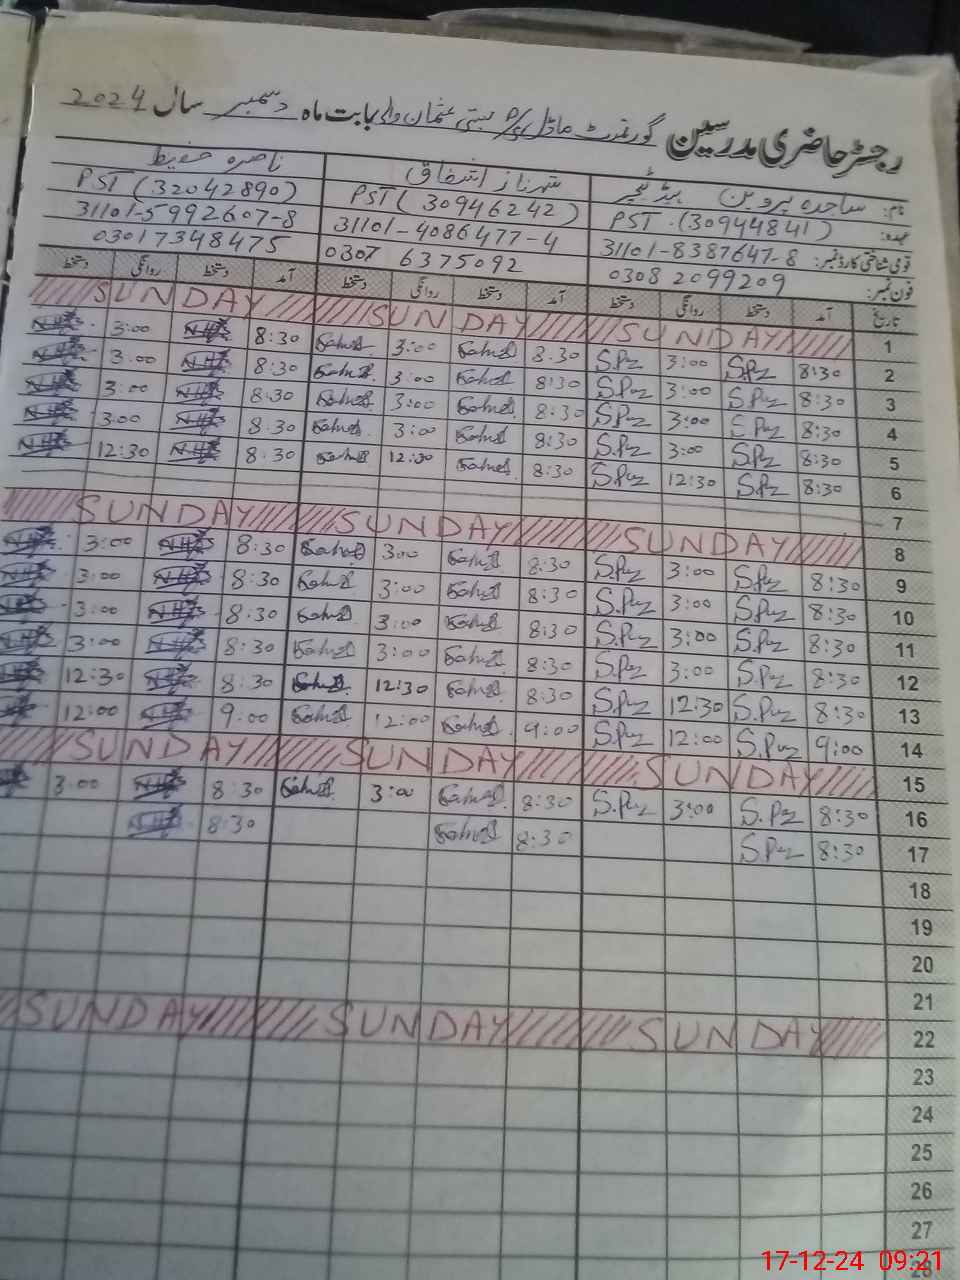 رجسٹر حاضری مدرسین گورنمنٹ ماڈل P/S بستی عثمان والی بابت ماہ دسمبر سال 2024
نام: ساجدہ پروین ہیڈ ٹیچر شہناز اشفاق ناصرہ حفیظ
عہدہ: PST (30944841) PST (30946242) PST (32042890)
قومی شناختی کارڈ نمبر: 31101-8387647-8 31101-4086477-4 31101-5992607-8
فون نمبر: 0308 2099209 0307 6375092 03017348475
تاریخ آمد دستخط روانگی دستخط آمد دستخط روانگی دستخط آمد دستخط روانگی دستخط
1 SUNDAY SUNDAY SUNDAY
2 8:30 S.Pz 3:00 S.Pz 8:30 3:00 8:30 3:00
3 8:30 S.Pz 3:00 S.Pz 8:30 3:00 8:30 3:00
4 8:30 S.Pz 3:00 S.Pz 8:30 3:00 8:30 3:00
5 8:30 S.Pz 3:00 S.Pz 8:30 3:00 8:30 3:00
6 8:30 S.Pz 12:30 S.Pz 8:30 12:30 8:30 12:30
7
8 SUNDAY SUNDAY SUNDAY
9 8:30 S.Pz 3:00 S.Pz 8:30 3:00 8:30 3:00
10 8:30 S.Pz 3:00 S.Pz 8:30 3:00 8:30 3:00
11 8:30 S.Pz 3:00 S.Pz 8:30 3:00 8:30 3:00
12 8:30 S.Pz 3:00 S.Pz 8:30 3:00 8:30 3:00
13 8:30 S.Pz 12:30 S.Pz 8:30 12:30 8:30 12:30
14 9:00 S.Pz 12:00 S.Pz 9:00 12:00 9:00 12:00
15 SUNDAY SUNDAY SUNDAY
16 8:30 S.Pz 3:00 S.Pz 8:30 3:00 8:30 3:00
17 8:30 S.Pz 8:30 8:30
18
19
20
21
22 SUNDAY SUNDAY SUNDAY
23
24
25
26
27
28
17-12-24 09:21